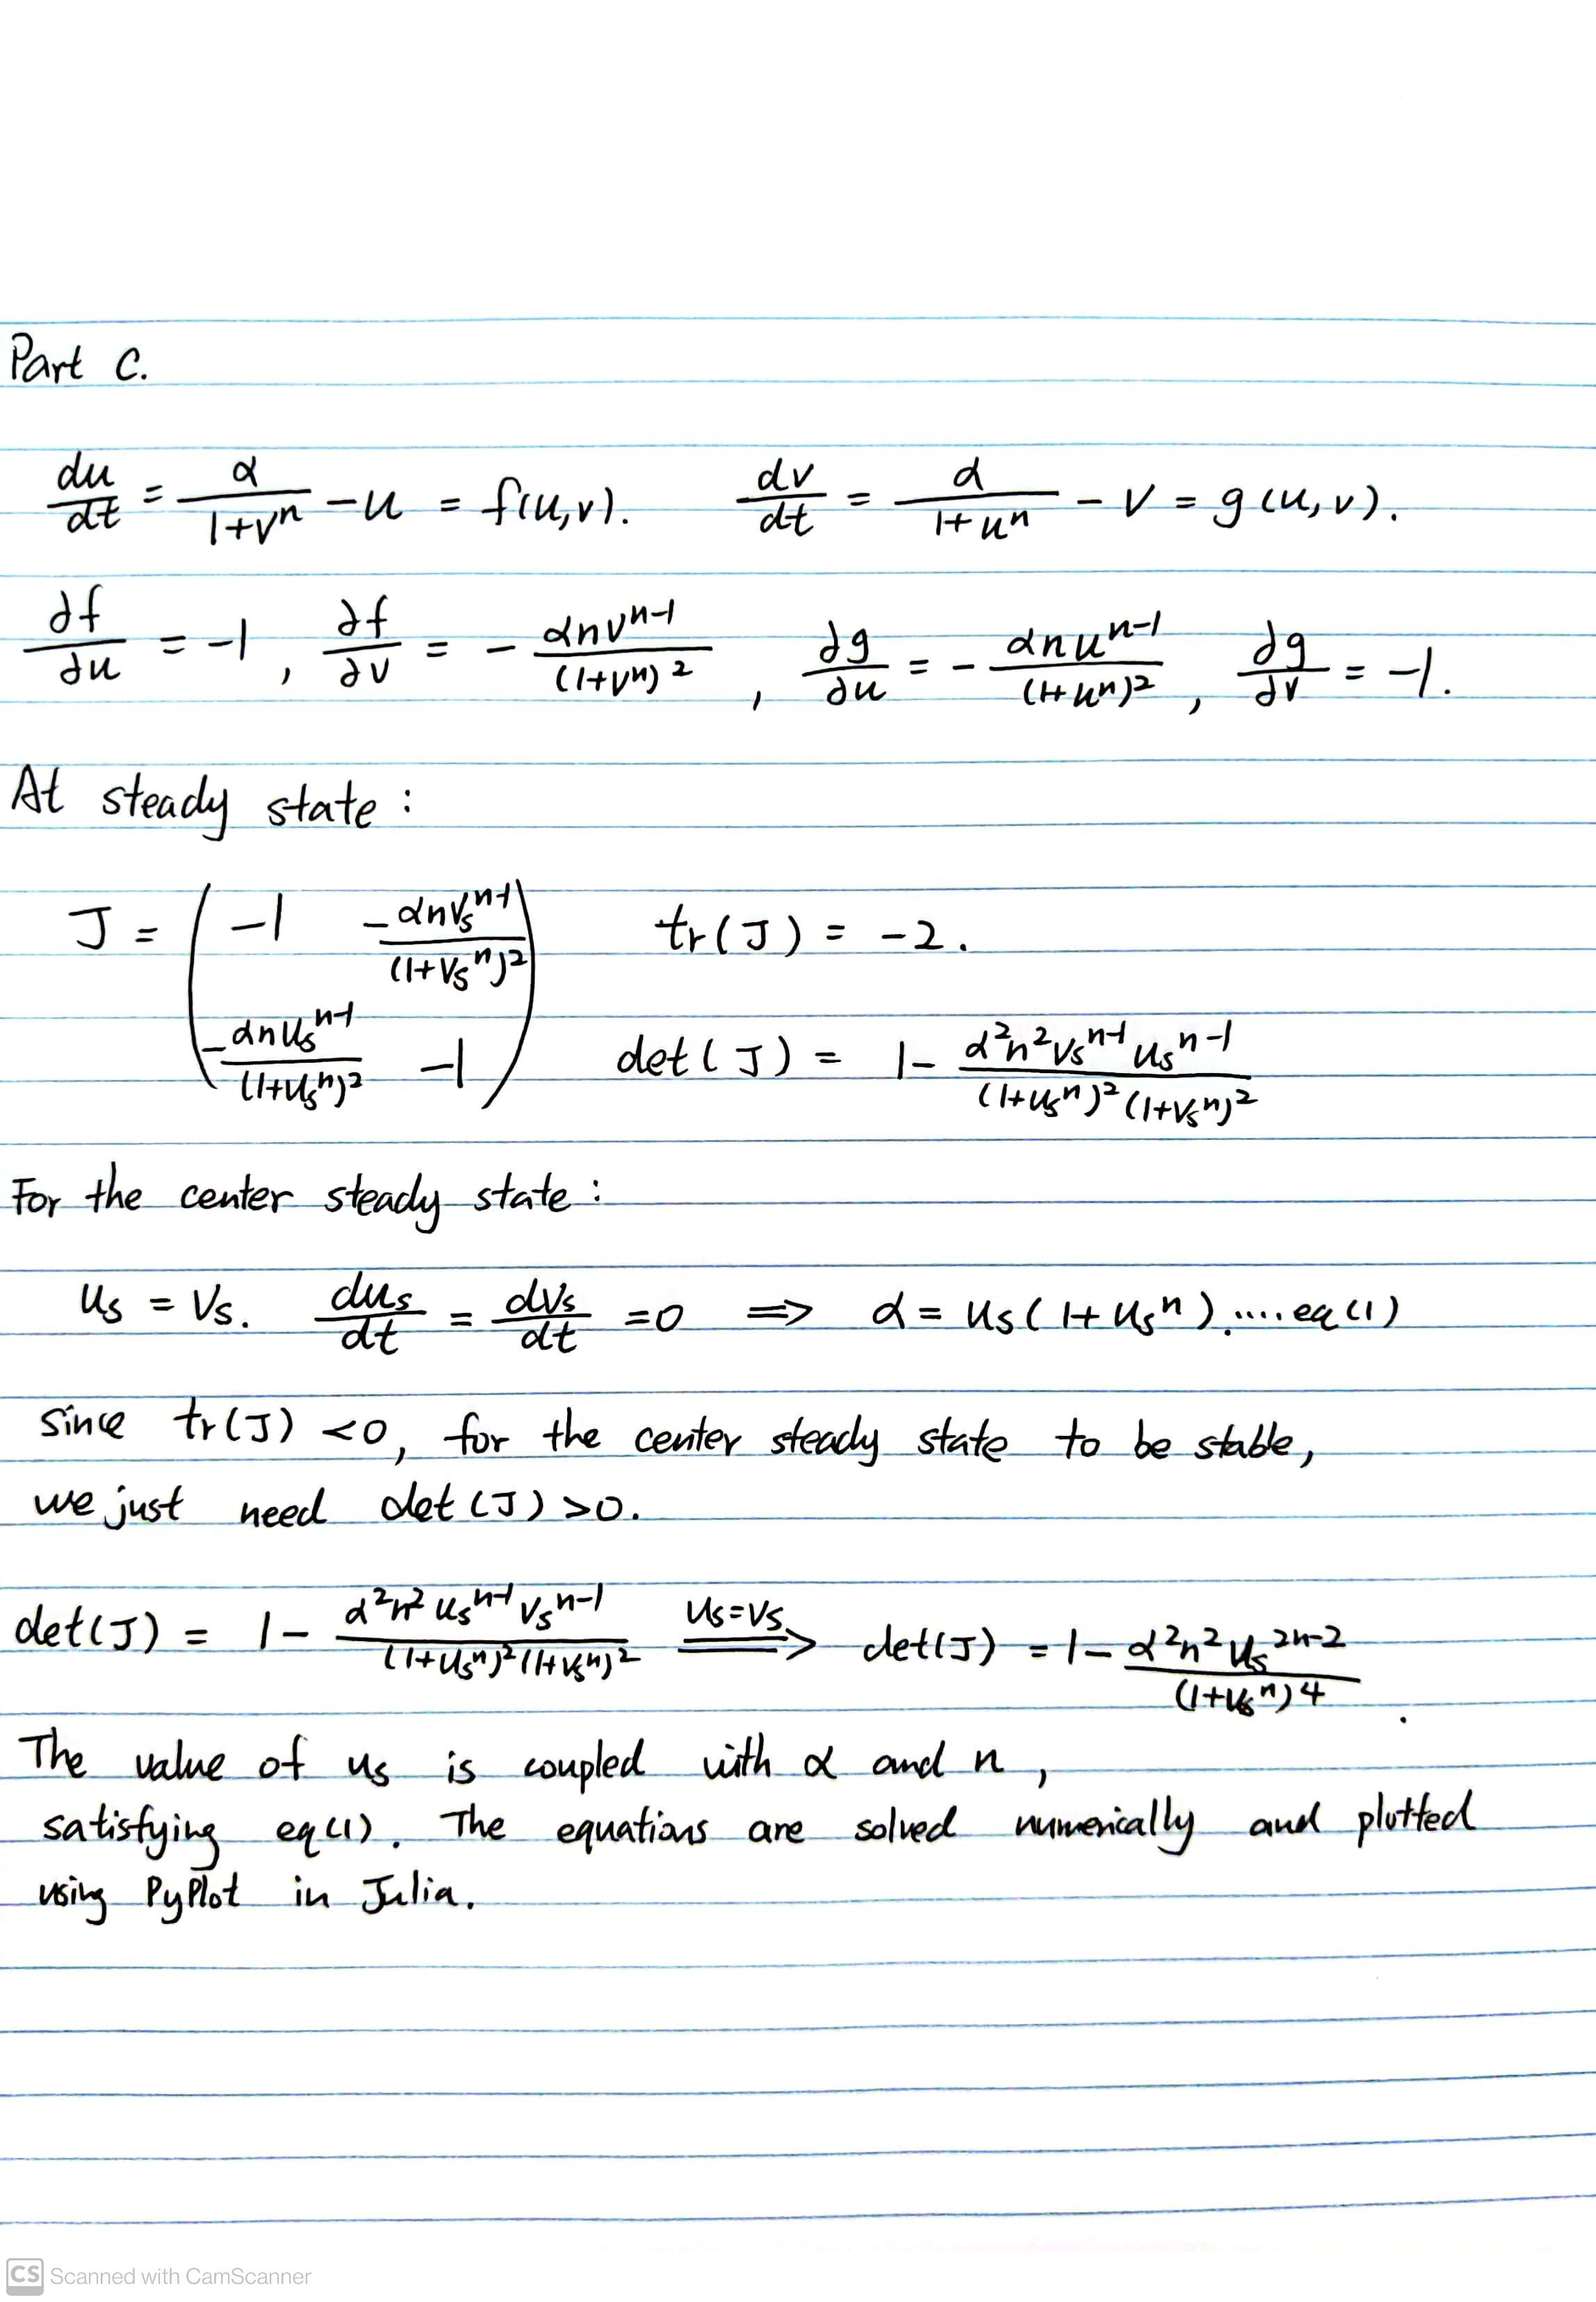 Part C.
du/dt = α/(1+vⁿ) − u = f(u,v). dv/dt = α/(1+uⁿ) − v = g(u,v).
∂f/∂u = −1, ∂f/∂v = − αnvⁿ⁻¹/(1+vⁿ)², ∂g/∂u = − αnuⁿ⁻¹/(1+uⁿ)², ∂g/∂v = −1.
At steady state :
J = ( −1 −αnv_sⁿ⁻¹/(1+v_sⁿ)² tr(J) = −2.
−αnu_sⁿ⁻¹/(1+u_sⁿ)² −1 ) det(J) = 1− α²n²v_sⁿ⁻¹u_sⁿ⁻¹/(1+u_sⁿ)²(1+v_sⁿ)²
For the center steady state :
u_s = v_s. du_s/dt = dv_s/dt = 0 ⟹ α = u_s(1+u_sⁿ).....eq(1)
since tr(J) <0, for the center steady state to be stable,
we just need det(J) >0.
det(J) = 1− α²n²u_sⁿ⁻¹v_sⁿ⁻¹/(1+u_sⁿ)²(1+v_sⁿ)² u_s=v_s ⟹ det(J) = 1− α²n²u_s²ⁿ⁻²/(1+u_sⁿ)⁴.
The value of u_s is coupled with α and n,
satisfying eq(1). The equations are solved numerically and plotted
using PyPlot in Julia.
CS Scanned with CamScanner